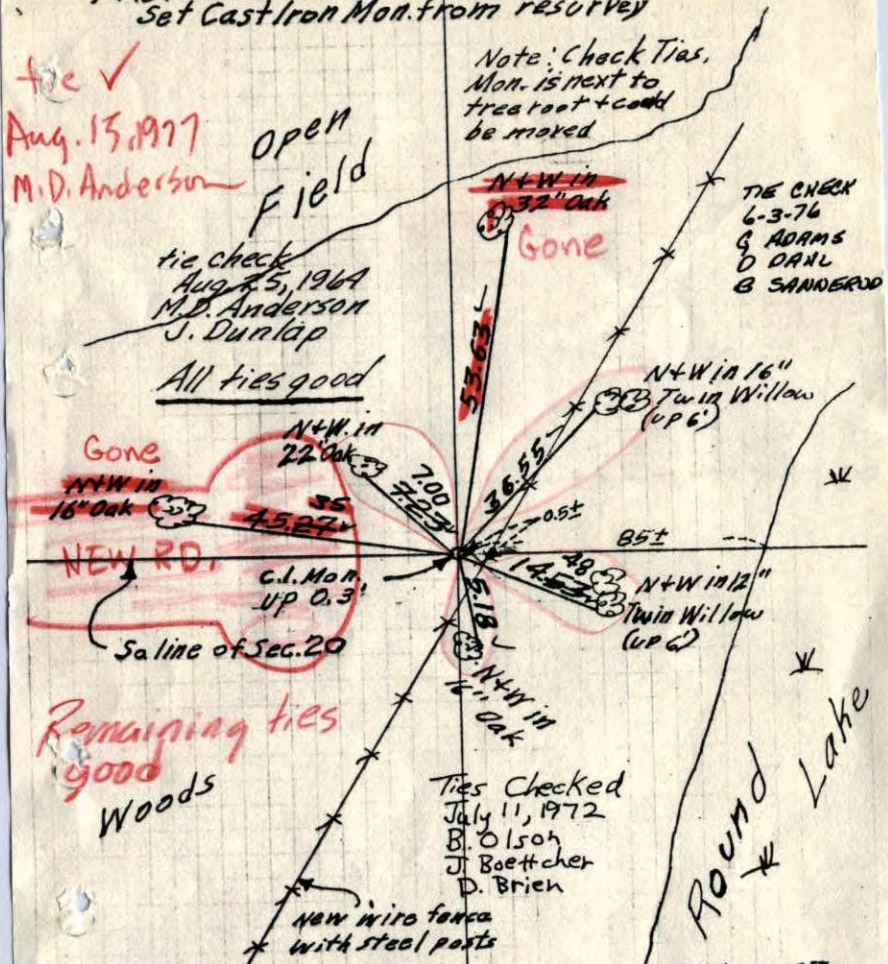 Set Cast Iron Mon. from resurvey
tie ✓
Aug. 15, 1977
M.D. Anderson
Open
Field
Note: Check Ties.
Mon. is next to
tree root + could
be moved
N+W in
32" Oak
Gone
TIE CHECK
6-3-76
G ADAMS
D DAHL
B SANNERUD
tie check
Aug. 25, 1964
M.D. Anderson
J. Dunlap
All ties good
53.63
N+W in 16"
Twin Willow
(up 6')
36.55
N+W. in
22" Oak
7.00
7.23
Gone
N+W in
16" Oak
35
45.27
0.5±
85±
NEW RD.
C.I. Mon.
UP 0.3'
48
14.53
N+W in 12"
Twin Willow
(UP 6')
5.18
So line of Sec. 20
N+W in
Oak
Remaining ties
good
Woods
Ties Checked
July 11, 1972
B. Olson
J. Boettcher
D. Brien
Round Lake
New wire fence
with steel posts